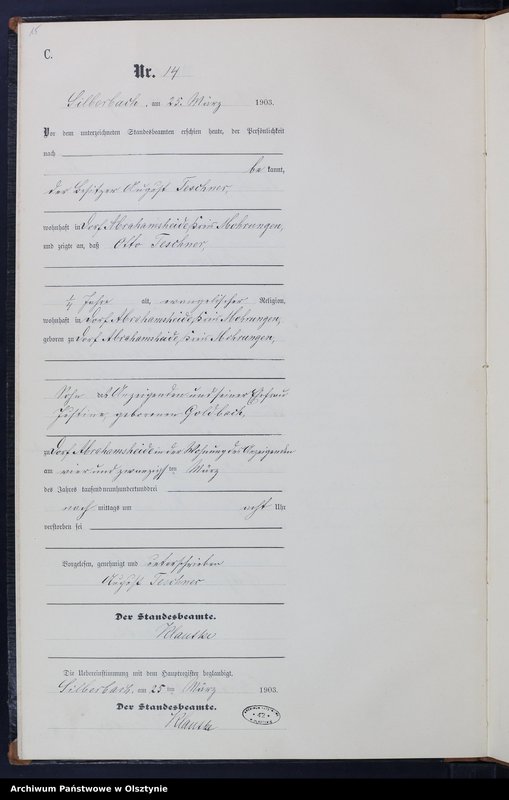 15
C.
Nr. 14
Silberbach, am 25. März 1903.
Vor dem unterzeichneten Standesbeamten erschien heute, der Persönlichkeit
nach
be kannt,
der Besitzer August Teschner,
wohnhaft in Dorf Abrahamsheide, Kreis Mohrungen,
und zeigte an, daß Otto Teschner,
¼ Jahre alt, evangelischer Religion,
wohnhaft in Dorf Abrahamsheide, Kreis Mohrungen,
geboren zu Dorf Abrahamsheide, Kreis Mohrungen,
Sohn des Anzeigenden und seiner Ehefrau
Justine, geborenen Goldbach,
zu Dorf Abrahamsheide in der Wohnung des Anzeigenden
am vier und zwanzigsten März
des Jahres tausendneunhundertunddrei
nach mittags um acht Uhr
verstorben sei
Vorgelesen, genehmigt und unterschrieben
August Teschner
Der Standesbeamte.
Die Uebereinstimmung mit dem Hauptregister beglaubigt.
Silberbach, am 25 ten März 1903.
Der Standesbeamte.
Archiwum Państwowe w Olsztynie